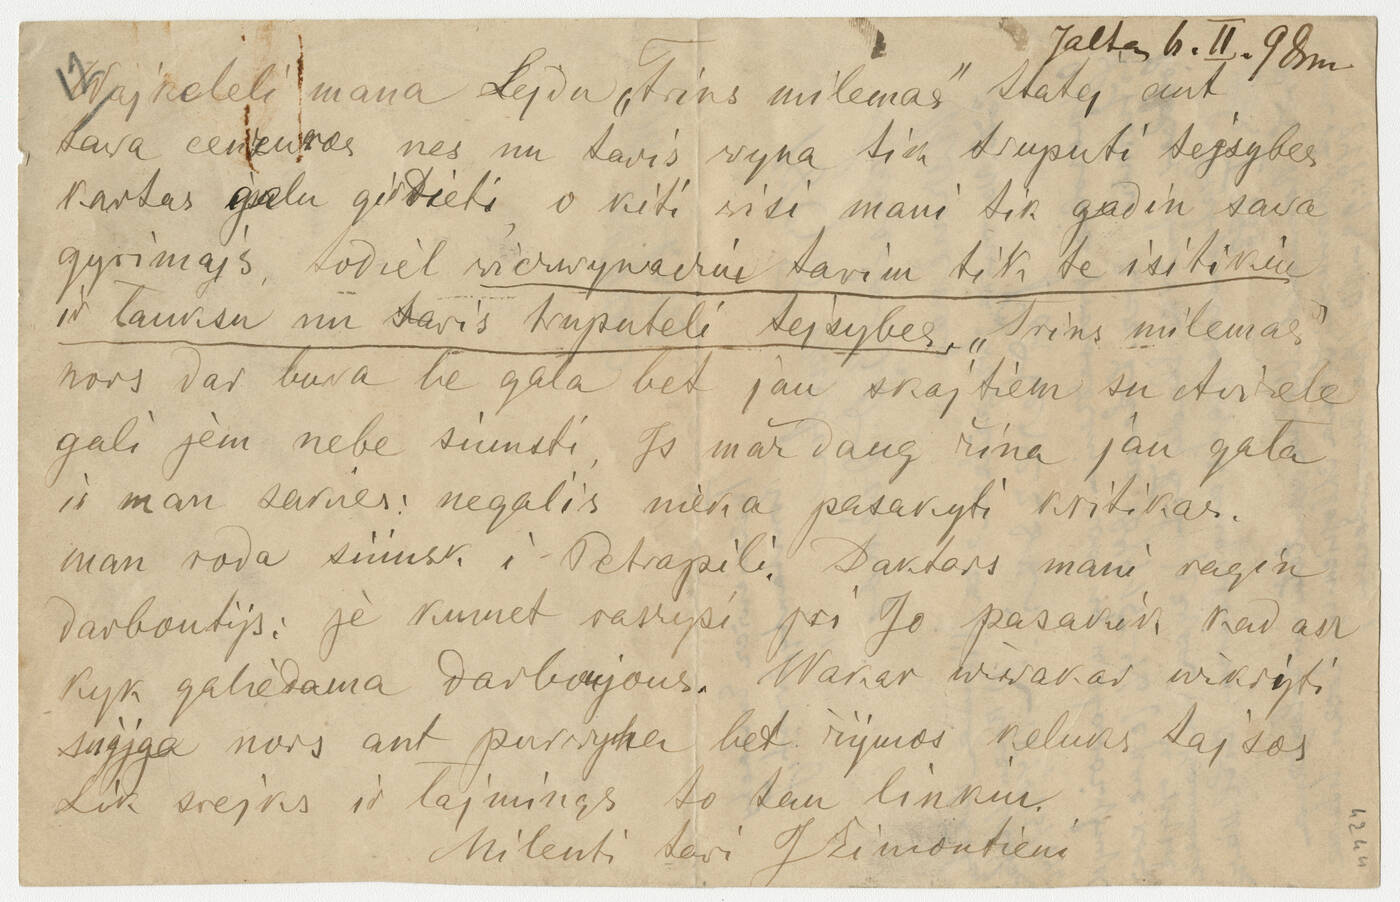 Jalta 6. II. 98m
17
Wajkeleli mana Lejdu „Trins milemas" statej ant
tawa cenzuros nes nu tavis wyna tik truputi tejsybes
kartas galu girdieti, o kiti wisi mani tik gadin sawa
gyrimajs, todiel wierwynaerin tavim tik te isitikiu
ir lauksu nu tavis truputeli tejsybes. „Trins milemas"
nors dar buwa be gala bet jau skajtiem su
gali jèm nebe siunsti, Js maž daug žina jau gala
ir man sakies: negalis nieka pasakyti kritikas.
man roda siunsk i Petrapili. Daktars mani ragin
darboutijs: jè kumet raszysi pri Jo pasakik kad asz
kyk galiedama darboujous. Wakar wiswakar wikryti
snigga nors ant purwyna bet žijmos keluks tajsos
Lik swejks ir lajmings to tau linkiu.
Milenti tavi J Žimontieni
4244